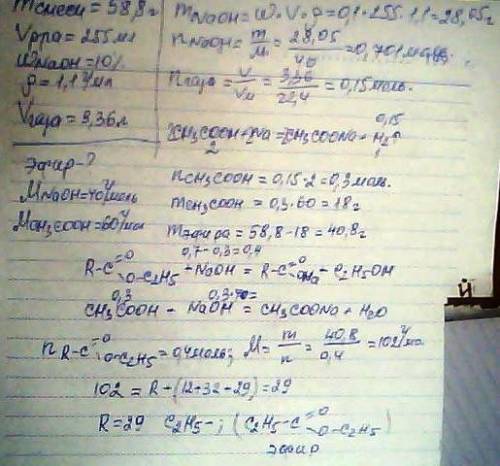 mсмеси = 58,8г
Vр-ра = 255 мл
WNaOH = 10%
ρ = 1,1 г/мл
Vгаза = 3,36 л
Эфир - ?
MNaOH = 40 г/моль
MCH₃COOH = 60 г/моль
mNaOH = W · V · ρ = 0,1 · 255 · 1,1 = 28,05 г
nNaOH = m/M = 28,05/40 = 0,701 моль
nгаза = V/Vм = 3,36/22,4 = 0,15 моль.
0,15
2CH₃COOH + 2Na = 2CH₃COONa + H₂↑
2 1
nCH₃COOH = 0,15 · 2 = 0,3 моль.
mCH₃COOH = 0,3 · 60 = 18 г
mэфира = 58,8 - 18 = 40,8 г
0,7 - 0,3 = 0,4
R-C=O O-C₂H₅ + NaOH = R-C=O ONa + C₂H₅OH
0,3 0,3
CH₃COOH + NaOH = CH₃COONa + H₂O
n R-C=O O-C₂H₅ = 0,4 моль; M = m/n = 40,8/0,4 = 102 г/мо
102 = R + (12+32+29) = 29
R = 29 C₂H₅-; (C₂H₅-C=O O-C₂H₅)
эфир
й